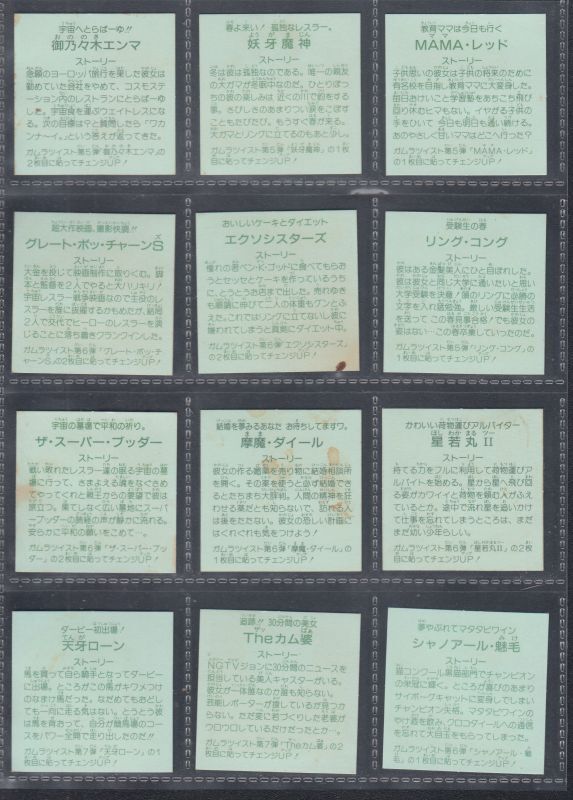 宇宙へとらばーゆ!!
御乃々木エンマ
ストーリー
念願のヨーロッパ旅行を果した彼女は
勤めていた会社をやめて、コスモステ
ーション内のレストランにとらばーゆ
した。宇宙食を運ぶウェイトレスにな
る。次の目標は?と質問したら「ワカ
ンナ〜イ。」という答えが返ってきた。
ガムラツイスト第5弾「御乃々木エンマ」の
2枚目に貼ってチェンジUP!
春よ来い!孤独なレスラー。
妖牙魔神
ストーリー
冬は彼は孤独なのである。唯一の親友
の大ガマが冬眠中なのだ。ひとりぼっ
ちの彼の楽しみは
さびしさのあまりつい涙をこぼす
こともたびたび。もうすぐ春が来る。
大ガマとリングに立てるのもあと少し。
ガムラツイスト第5弾「妖牙魔神」の1枚
目に貼ってチェンジUP!
教育ママは今日も行く
MAMA・レッド
ストーリー
子供思いの彼女は子供の将来のために
有名校を目指し教育ママに大変身した。
毎日おけいこと学習塾をあちこち飛び
回り休むヒマもない。イヤがる子供の
手をひいて今日も明日も通い続ける。
あのやさしくて甘いママはどこへ行った?
ガムラツイスト第5弾「MAMA・レッド」の
1枚目に貼ってチェンジUP!
超大作映画、撮影快調!!
グレート・ポッ・チャーンS
ストーリー
大金を投じて映画制作に取りくむ。脚
本と監督を2人でやると大ハリキリ!
宇宙レスラー戦争映画なので主役のレ
スラーを誰に抜擢するかもめたが、結局
2人で交代でヒーローのレスラーを演
じることに落ち着きクランクインした。
ガムラツイスト第6弾「グレート・ポッ・チ
ャーンS」の2枚目に貼ってチェンジUP!
おいしいケーキとダイエット
エクソシスターズ
ストーリー
憧れの君ベン・K・ゴッドに食べてもらお
うとセッセとケーキを作っているうち
に、とうとうお店まで出した。売れゆき
も順調に伸びて二人の体重もグンとふ
えた。これではリングに立てないし彼に
嫌われてしまうと真剣にダイエット中。
ガムラツイスト第6弾「エクソシスターズ」
の2枚目に貼ってチェンジUP!
受験生の春
リング・コング
ストーリー
彼はある金髪美人にひと目ぼれした。
彼は彼女と同じ大学に通いたいと思い
大学受験を決意!頭のリングに必勝の
文字を入れて猛勉強。厳しい受験生生活
を送って この春見事合格!でも彼女の
姿はない…この春卒業していったのだ。
ガムラツイスト第5弾「リング・コング」の
1枚目に貼ってチェンジUP!
宇宙の墓場で平和の祈り。
ザ・スーパー・ブッダー
ストーリー
戦い敗れたレスラー達の眠る宇宙の墓
場に行って、さまよえる魂をなぐさめ
てやってくれと親王からの要望で彼は
旅立つ。果てしなく広い墓地にスーパ
ーブッダーの読経の声が静かに流れる。
安らかに平和の願いをこめて…。
ガムラツイスト第6弾「ザ・スーパー・ブッ
ダー」の2枚目に貼ってチェンジUP!
結婚を夢みるあなた お待ちしてますワ。
摩魔・ダイール
ストーリー
彼女の作る媚薬を売り物に結婚相談所
を開く。その薬を使うと必ず結婚でき
るとたちまち大評判。人間の精神を狂
わせる薬だとも知らないで、訪れる人
は後をたたない。彼女の恐しい計画に
はくれぐれも気をつけよう!
ガムラツイスト第6弾「摩魔・ダイール」の
1枚目に貼ってチェンジUP!
かわいい荷物運びアルバイター
星若丸II
ストーリー
持てる力をフルに利用して荷物運びア
ルバイトを始める。星から星へ飛び回
る姿がカワイイと荷物を頼む人がふえ
ているとか。途中で流れ星を追いかけ
て仕事を忘れてしまうところは、まだ
まだ幼い少年らしい。
ガムラツイスト第6弾「星若丸II」の2枚
目に貼ってチェンジUP!
ダービー初出場!!
天牙ローン
ストーリー
馬を買って自ら騎手となってダービー
に出場。ところがこの馬がキワメつけ
のなまけ馬だった。なだめてもおどし
ても一向に走る気はない。とうとう彼
は馬を背おって、自分が競馬場のコー
スをパワー全開で走り出したのだ!
ガムラツイスト第7弾「天牙ローン」の1
枚目に貼ってチェンジUP!
追跡!!30分間の美女
Theカム婆
ストーリー
NGTVジョンに30分間のニュースを
担当している美人キャスターがいる。
彼女が一体誰なのか誰も知らない。
芸能レポーターが捜しているが見つか
らない。ただ変に若づくりした老婆が
ウロウロしているだけだったとか…。
ガムラツイスト第7弾「Theカム婆」の2
枚目に貼ってチェンジUP!
夢やぶれてマタタビワイン
シャノアール・魅毛
ストーリー
猫コンクール黒猫部門でチャンピオン
の栄冠に輝く。ところが喜びのあまり
サイボーグキャットに変身してしまい
チャンピオン失格。マタタビワインの
やけ酒を飲み、ウロコダイールへの通信
を忘れて大目玉をもらってしまった。
ガムラツイスト第6弾「シャノアール・魅
毛」の1枚目に貼ってチェンジUP!